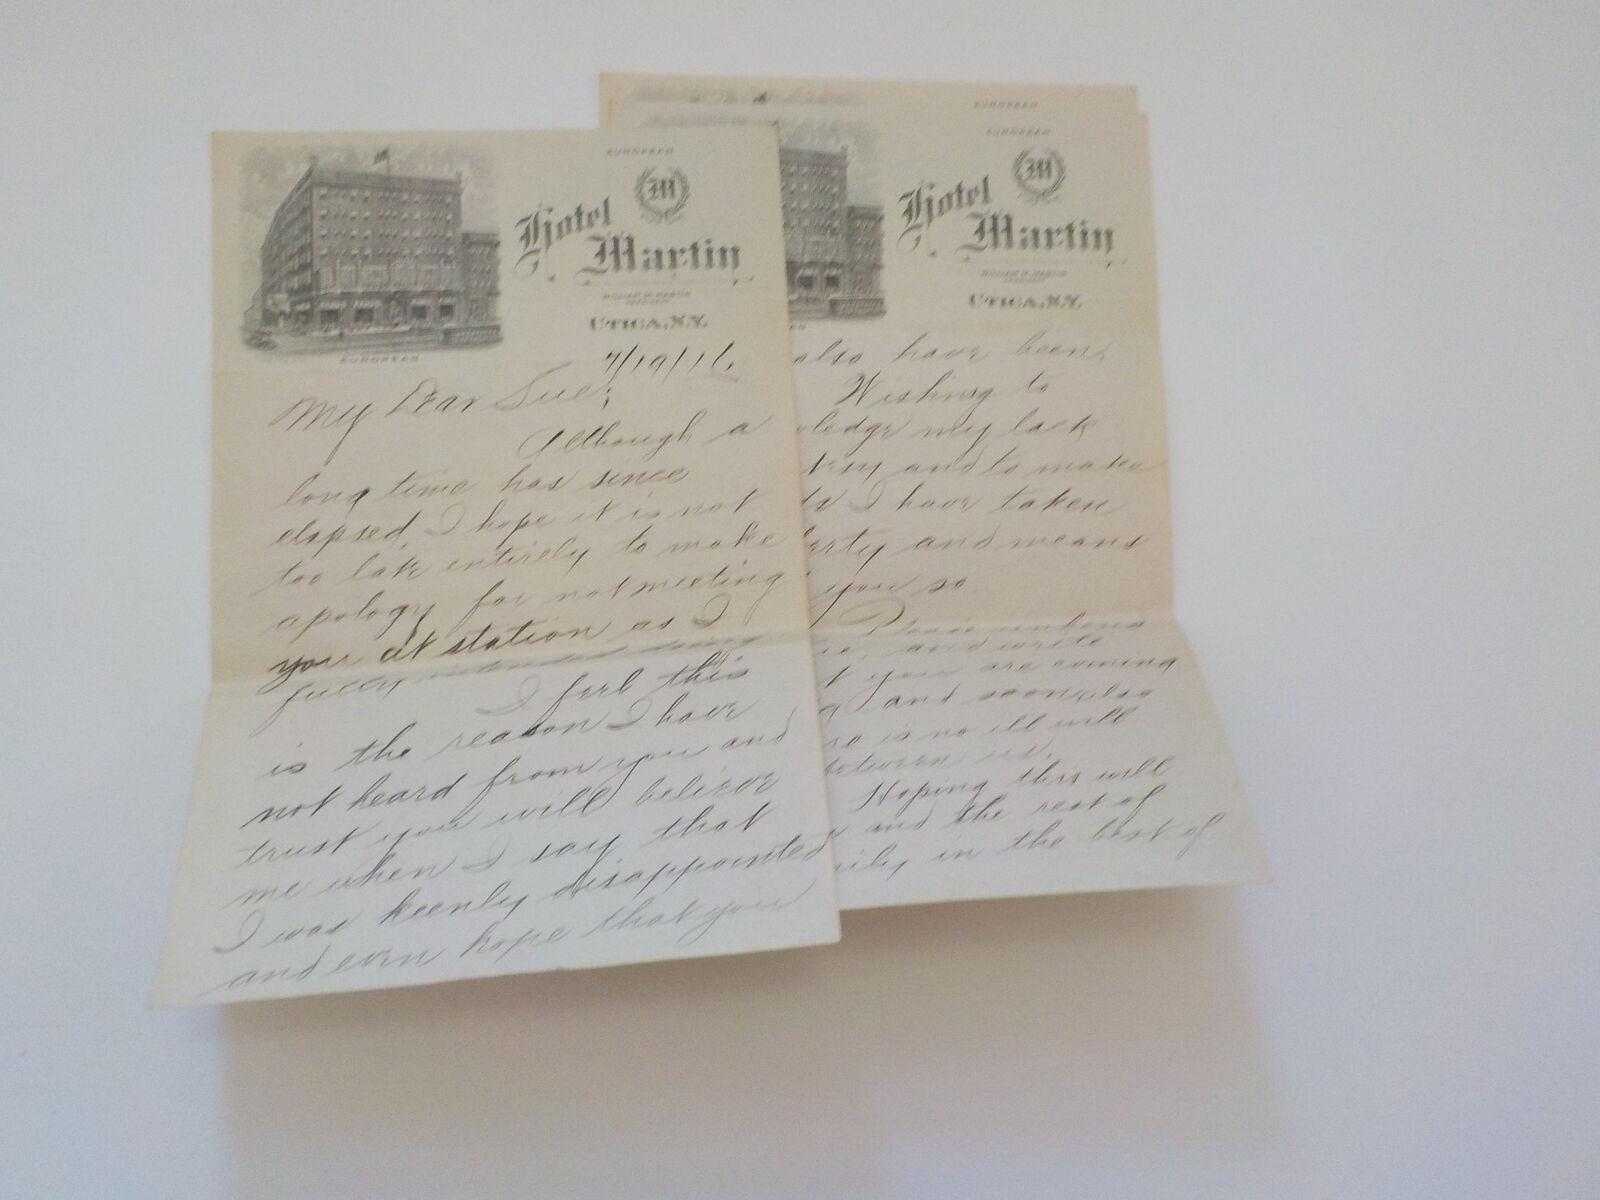 EUROPEAN
Hotel
M
Martin
UTICA, N.Y.
EUROPEAN
My Dear Sue;
Although a
long time has since
elapsed, I hope it is not
too late entirely to make
apology for not meeting
you at station as I
fully intended doing
I feel this
is the reason I have
not heard from you and
trust you will believe
me when I say that
I was keenly disappointed
and even hope that you
EUROPEAN
EUROPEAN
Hotel
M
Martin
UTICA, N.Y.
also have been.
Wishing to
my lack
and to make
I have taken
and means
you so.
and write
you are coming
and soon also
is no ill will
between us.
Hoping this will
and the rest of
in the best of